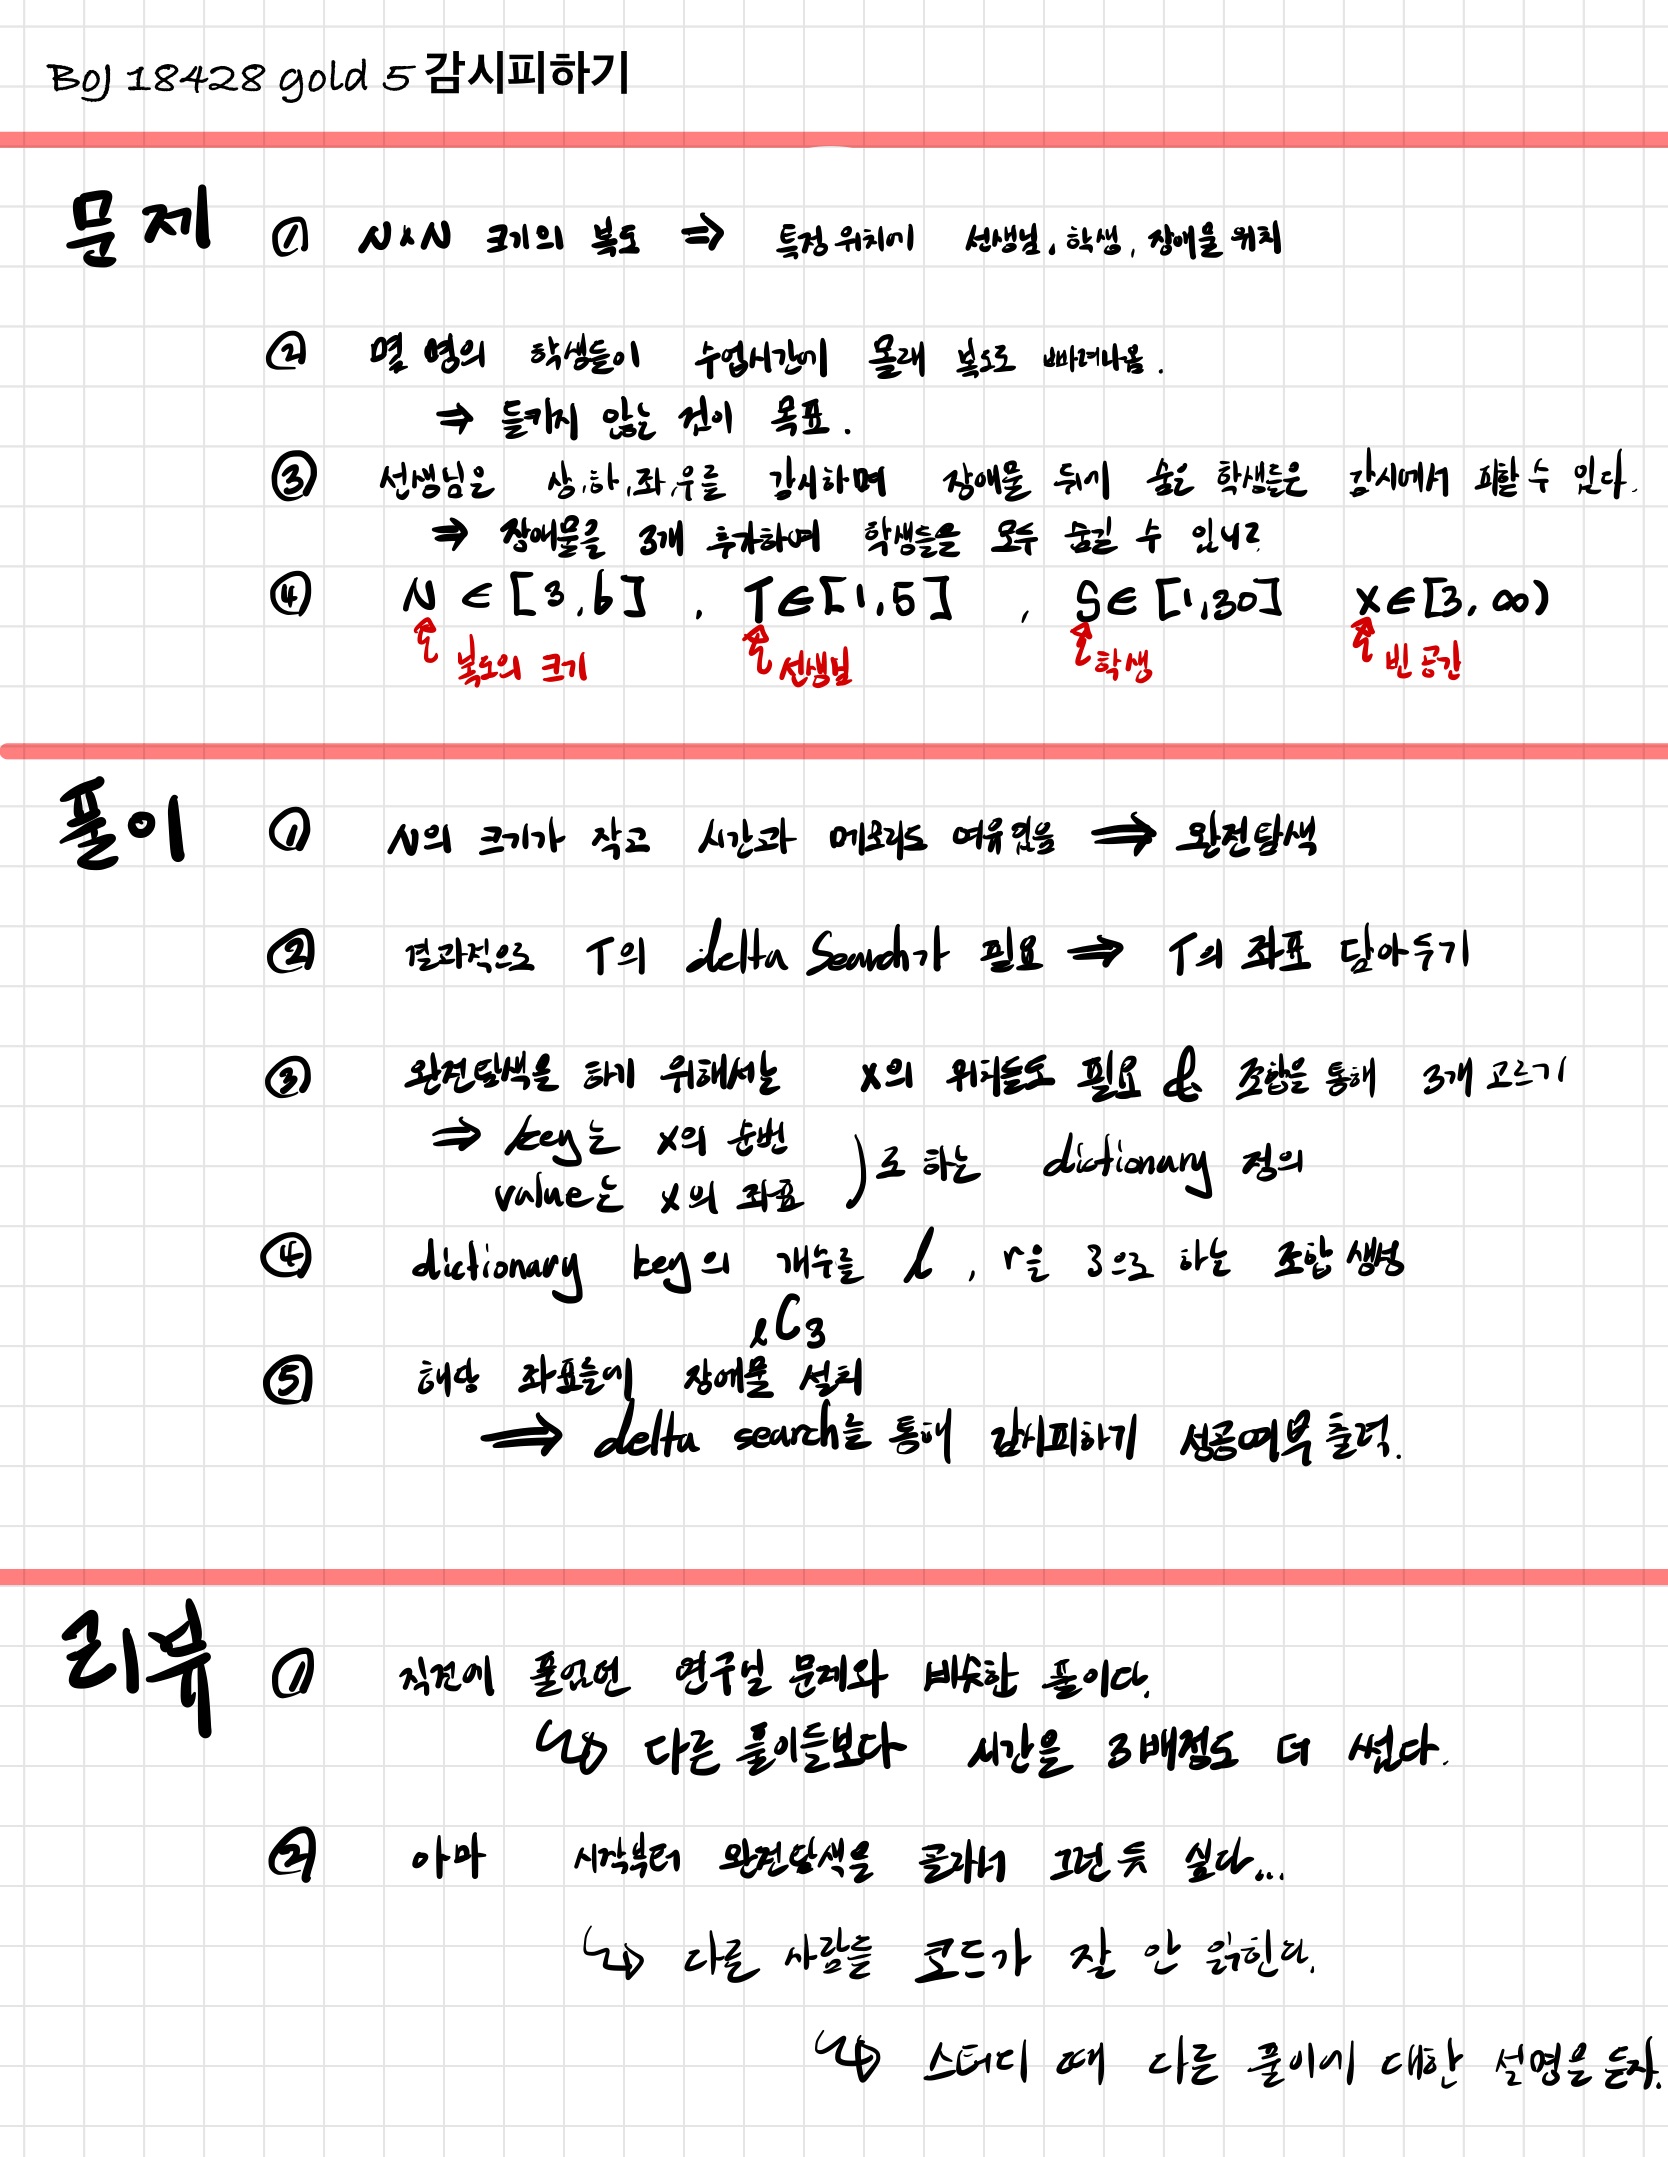 BOJ 18428 gold 5 감시피하기
문제 ① N×N 크기의 복도 ⇒ 특정 위치에 선생님, 학생, 장애물 위치
② 몇 명의 학생들이 수업시간에 몰래 복도로 빠져나옴.
⇒ 들키지 않는 것이 목표.
③ 선생님은 상,하,좌,우를 감시하며 장애물 뒤에 숨은 학생들은 감시에서 피할 수 있다.
⇒ 장애물을 3개 추가하여 학생들을 모두 숨길 수 있니?
④ N ∈ [3,6] , T ∈ [1,5] , S ∈ [1,30] X ∈ [3, ∞)
복도의 크기 선생님 학생 빈 공간
풀이 ① N의 크기가 작고 시간과 메모리도 여유있음 ⇒ 완전탐색
② 결과적으로 T의 delta search가 필요 ⇒ T의 좌표 담아두기
③ 완전탐색을 하기 위해서는 X의 위치들도 필요 & 조합을 통해 3개 고르기
⇒ key는 X의 순번
value는 X의 좌표 ) 로 하는 dictionary 정의
④ dictionary key의 개수를 l , r을 3으로 하는 조합 생성
lC3
⑤ 해당 좌표들에 장애물 설치
⇒ delta search를 통해 감시피하기 성공여부 출력.
리뷰 ① 직전에 풀었던 연구실 문제와 비슷한 풀이다.
↳ 다른 풀이들보다 시간을 3배정도 더 썼다.
② 아마 시작부터 완전탐색을 골라서 그런 듯 싶다...
↳ 다른 사람들 코드가 잘 안 읽힌다.
↳ 스터디 때 다른 풀이에 대한 설명을 듣자.